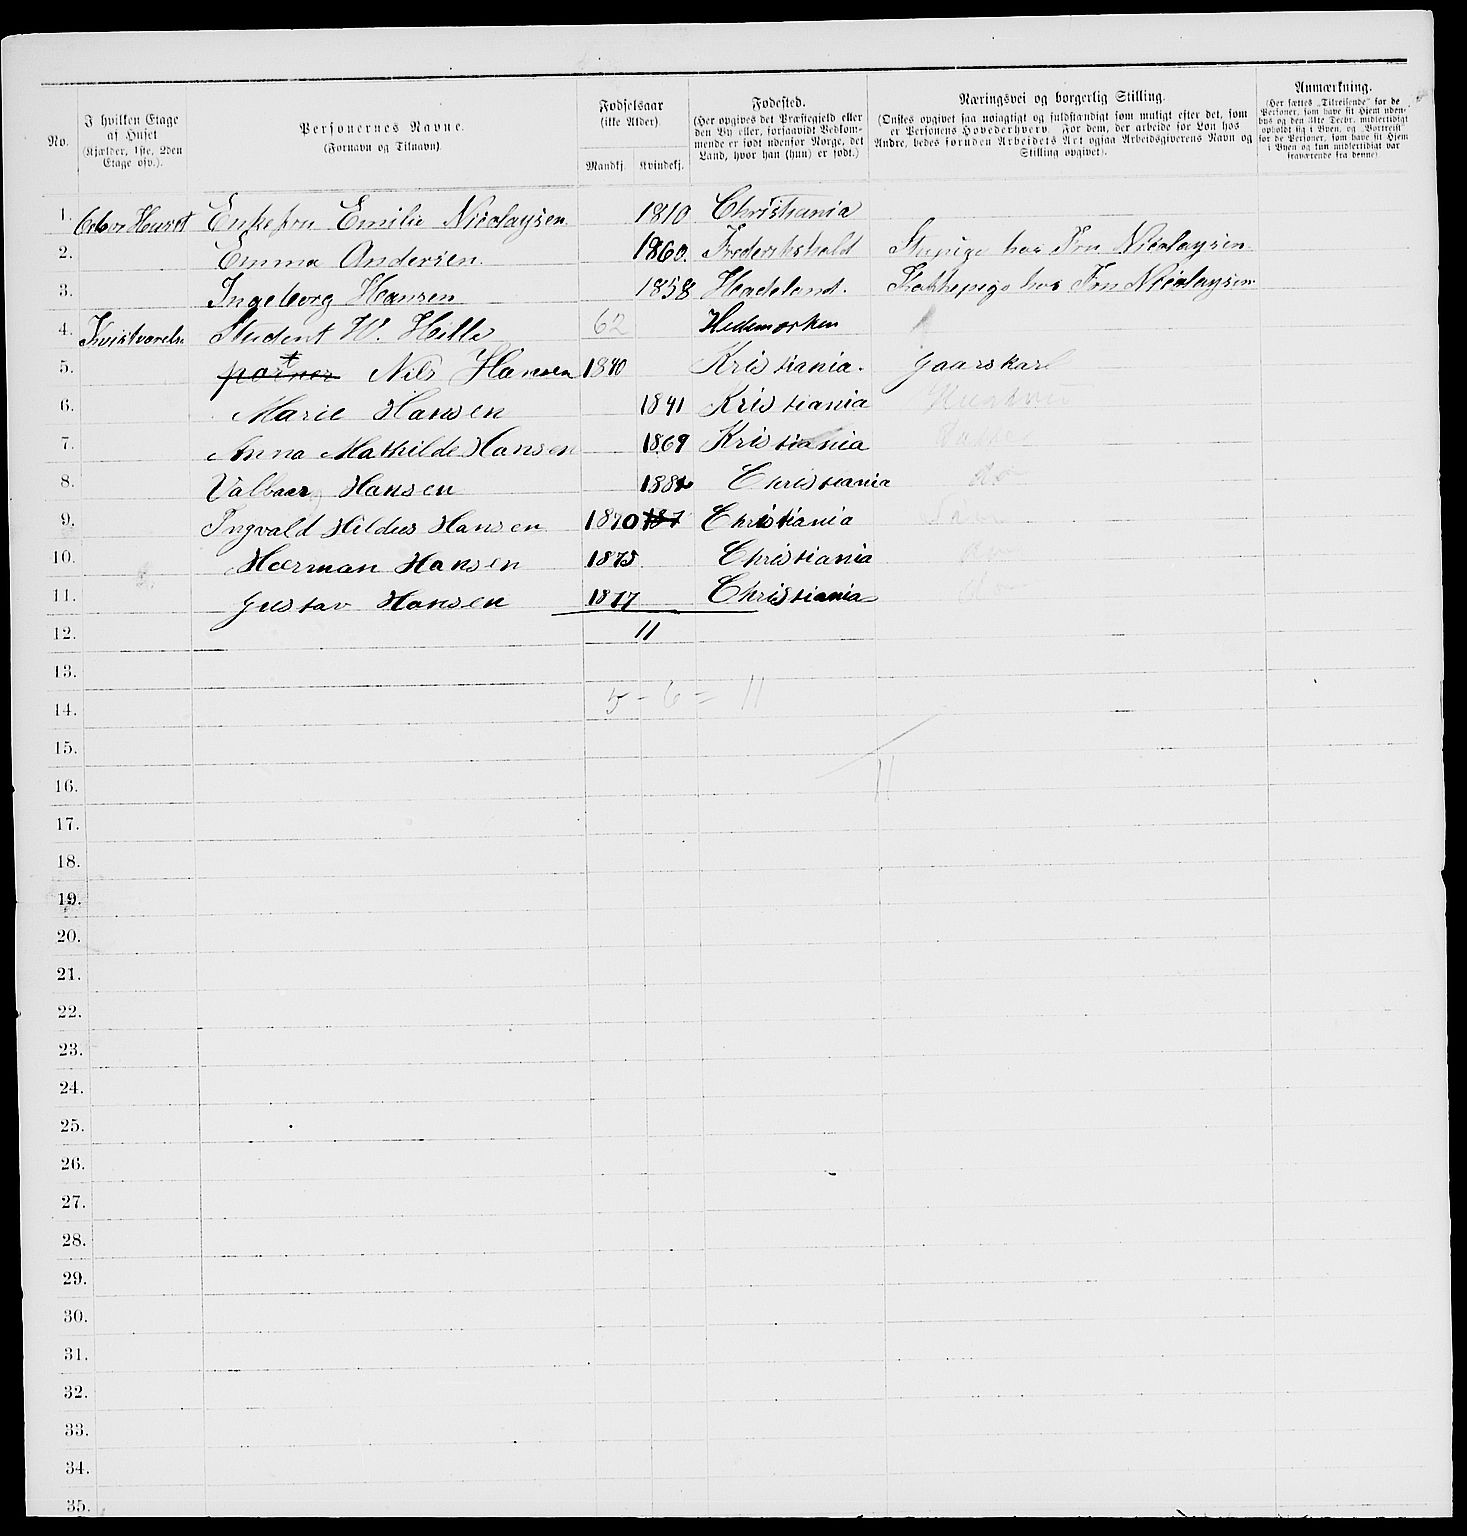 No.
I hvilken Etage af Huset (Kjælder, 1ste, 2den Etage osv.).
Personernes Navne. (Fornavn og Tilnavn).
Fødselsaar (ikke Alder). Mandkj. Kvindekj.
Fødested. (Her opgives det Præstegjeld eller den By eller, forsaavidt Vedkommende er født udenfor Norge, det Land, hvor han (hun) er født.)
Næringsvei og borgerlig Stilling. (Ønskes opgivet saa nøiagtigt og fuldstændigt som muligt efter det, som er Personens Hovederhverv. For dem, der arbeide for Løn hos Andre, bedes foruden Arbeidets Art ogsaa Arbeidsgiverens Navn og Stilling opgivet).
Anmærkning. (Her sættes „Tilreisende" for de Personer, som have sit Hjem udenbys og den 31te Decbr. midlertidigt opholdt sig i Byen, og „Bortreist" for de Personer, som have sit Hjem i Byen og kun midlertidigt var fraværende fra denne)
1. Huset Enkefru Emilie Nicolaysen 1810 Christiania
2. Emma Andersen 1860. Frederikshald Stupige hos Fru Nicolaysen
3. Ingeborg Hansen 1858 Hadeland. Kokkepige hos Fru Nicolaysen
4. Kvistværelse Student W. Hille 62 Hedemarken
5. Nils Hansen 1840 Kristiania. gaarskarl
6. Marie Hansen 1841 Kristiania
7. Anna Mathilde Hansen 1869 Kristiania Datter
8. Valbaar Hansen 1881 Christiania do
9. Ingvald Hildus Hansen 1870 187 Christiania
10. Hærman Hansen 1875 Christiania do
11. gustav Hansen 1877 Christiania do
12. 11
13.
14. 5 - 6 = 11
15.
16. 11
17.
18.
19.
20.
21.
22.
23.
24.
25.
26.
27.
28.
29.
30.
31.
32.
33.
34.
35.